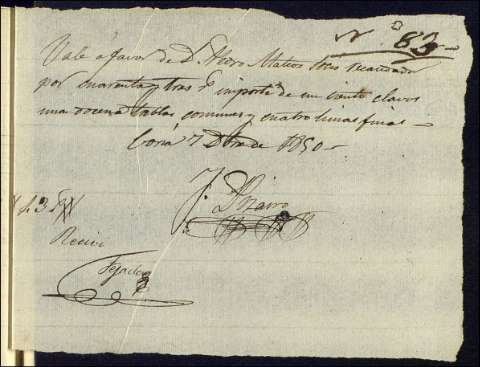 N.º 83
Vale a favor de D. Pedro Mateos
por cuarenta y tres r.s importe de un ciento clavos
una docena tablas comunes y cuatro limas finas
Coria 7 Dbre de 1850
J. Pizarro
43 r.s
Recivi
Tejado